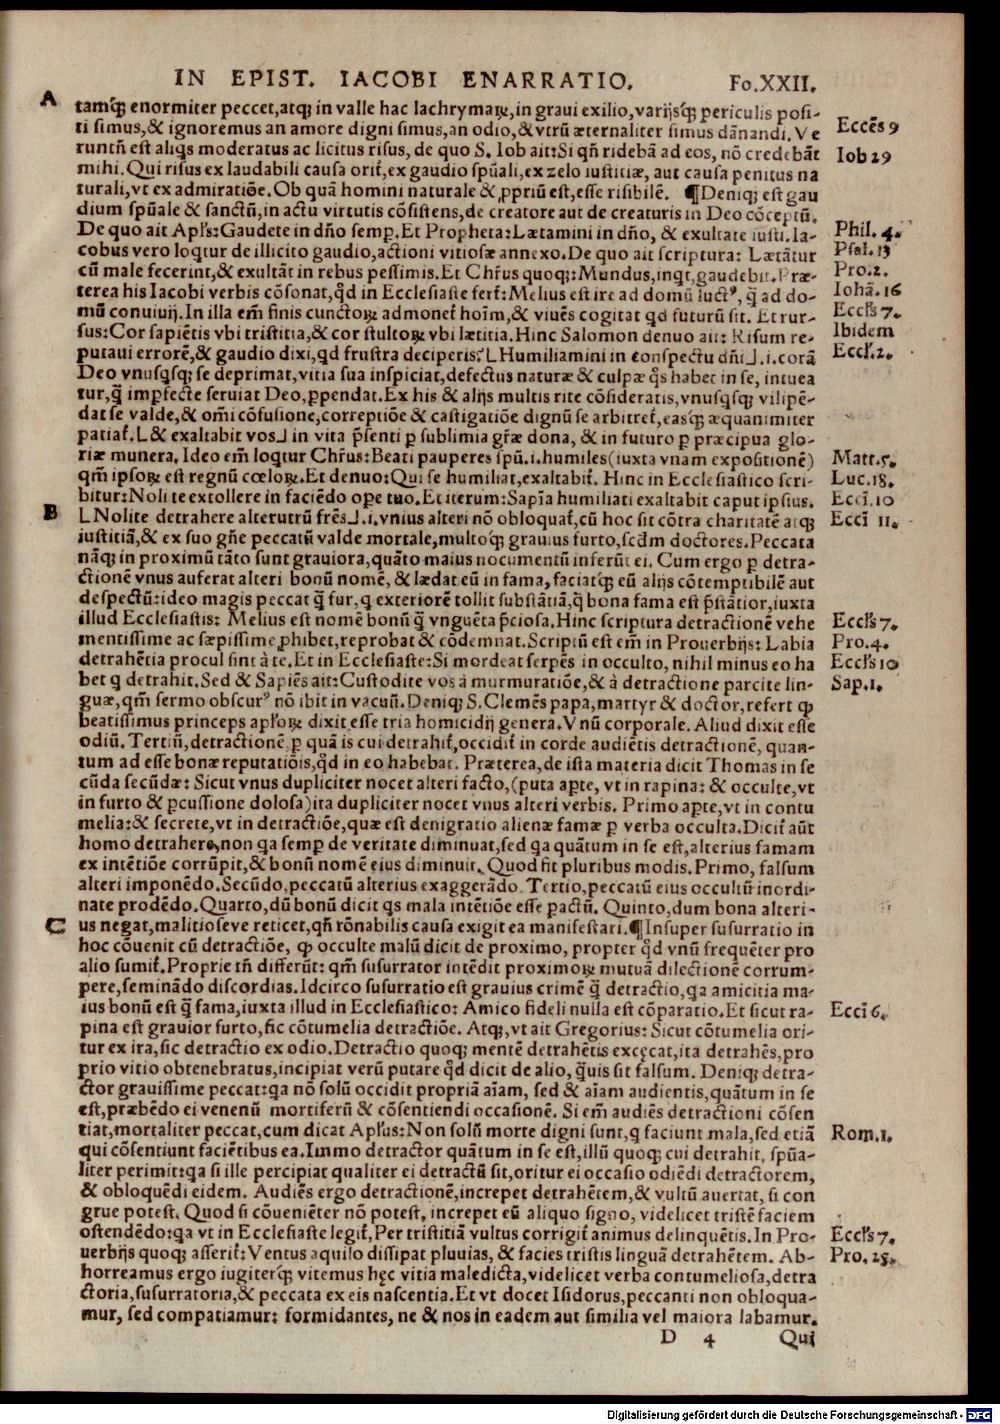 IN EPIST. IACOBI ENARRATIO. Fo.XXII.
A
tamq́ꝫ enormiter peccet,atqꝫ in valle hac lachrymaꝝ,in graui exilio,varijsq́ꝫ periculis posi-
ti simus,& ignoremus an amore digni simus,an odio,&vtrũ æternaliter simus dãnandi.Ve
Ecces̃ 9
runtñ est aliqs moderatus ac licitus risus, de quo S. Iob ait:Si qñ ridebã ad eos, nõ credebãt
Iob 29
mihi. Qui risus ex laudabili causa orit̃,ex gaudio spũali,ex zelo iustitiæ, aut causa penitus na
turali,vt ex admiratiõe. Ob quã homini naturale &,ꝓpriũ est,esse risibilẽ. ¶Deniqꝫ est gau
dium spũale & sanctũ,in actu virtutis cõsistens,de creatore aut de creaturis in Deo cõceptũ.
De quo ait Apl̃s:Gaudete in dño semꝑ. Et Propheta:Lætamini in dño, & exultate iusti. Ia-
Phil. 4.
cobus vero loq̃tur de illicito gaudio,actioni vitiosæ annexo.De quo ait scriptura: Lætãtur
Psal. 13
cũ male fecerint,& exultãt in rebus pessimis.Et Chr̃us quoqꝫ:Mundus,inqt,gaudebit.Præ-
Pro.2.
terea his Iacobi verbis cõsonat,q̊d in Ecclesiaste fert̃:Melius est ire ad domũ luctꝰ, q̃ ad do-
Iohã. 16
mũ conuiuij. In illa em̃ finis cunctoꝝ admonet̃ hoĩm, & viuẽs cogitat qd futurũ sit. Et rur-
Eccl̃s 7.
sus:Cor sapiẽtis vbi tristitia,& cor stultoꝝ vbi lætitia. Hinc Salomon denuo ait: Risum re-
Ibidem
putaui errorẽ,& gaudio dixi,qd frustra deciperis?⌊Humiliamini in conspectu dñi⌋.i.corã
Eccl̃.2.
Deo vnusqsqꝫ se deprimat,vitia sua inspiciat,defectus naturæ & culpæ q̊s habet in se, intuea
tur,q̃ imꝑfecte seruiat Deo,ꝑpendat. Ex his & alijs multis rite cõsideratis,vnusqsqꝫ vilipẽ-
dat se valde,& om̃i cõfusione,correptiõe & castigatiõe dignũ se arbitret̃,easq́ꝫ æquanimiter
patiat̃.⌊& exaltabit vos⌋ in vita p̃senti ꝑ sublimia gr̃æ dona, & in futuro ꝑ præcipua glo-
riæ munera. Ideo em̃ loq̃tur Chr̃us:Beati pauperes spũ.i.humiles(iuxta vnam expositionẽ)
Matt.5.
qm̃ ipsoꝝ est regnũ cœloꝝ.Et denuo:Qui se humiliat,exaltabit̃. Hinc in Ecclesiastico scri-
Luc.18.
bitur:Noli te extollere in faciẽdo oꝑe tuo. Et iterum: Sapĩa humiliati exaltabit caput ipsius.
Eccĩ.10
B
⌊Nolite detrahere alterutrũ fr̃es⌋.i.vnius alteri nõ obloquat̃,cũ hoc sit cõtra charitatẽ atqꝫ
Eccĩ 11.
iustitiã,& ex suo gñe peccatũ valde mortale,multoq́ꝫ grauius furto,scd̃m doctores.Peccata
nãqꝫ in proximũ tãto sunt grauiora,quãto maius nocumentũ inferũt ei. Cum ergo ꝑ detra-
ctionẽ vnus auferat alteri bonũ nomẽ, & lædat eũ in fama, faciatq́ꝫ eũ alijs cõtemptibilẽ aut
despectũ:ideo magis peccat q̃ fur,q exteriorẽ tollit substãtiã,q̃ bona fama est p̃stãtior,iuxta
illud Ecclesiastis: Melius est nomẽ bonũ q̃ vnguẽta p̃ciosa.Hinc scriptura detractionẽ vehe
Eccl̃s 7.
mentissime ac sæpissime,ꝓhibet,reprobat & cõdemnat. Scriptũ est em̃ in Prouerbijs: Labia
Pro.4.
detrahẽtia procul sint à te. Et in Ecclesiaste:Si mordeat serpẽs in occulto, nihil minus eo ha
Eccl̃s 10
bet q detrahit. Sed & Sapiẽs ait:Custodite vos à murmuratiõe,& à detractione parcite lin-
Sap.1.
guæ,qm̃ sermo obscurꝰ nõ ibit in vacuũ.Deniqꝫ S.Clemẽs papa,martyr & doctor,refert ꝙ
beatissimus princeps apl̃oꝝ dixit esse tria homicidij genera. Vnũ corporale. Aliud dixit esse
odiũ. Tertiũ,detractionẽ,ꝑ quã is cui detrahit̃,occidit̃ in corde audiẽtis detractionẽ, quan-
tum ad esse bonæ reputatiõis,q̊d in eo habebat. Præterea,de ista materia dicit Thomas in se
cũda secũdæ: Sicut vnus dupliciter nocet alteri facto,(puta aꝑte, vt in rapina: & occulte,vt
in furto & ꝑcussione dolosa)ita dupliciter nocet vnus alteri verbis. Primo aꝑte,vt in contu
melia:& secrete,vt in detractiõe,quæ est denigratio alienæ famæ ꝑ verba occulta.Dicit̃ aũt
homo detrahere,non qa semꝑ de veritate diminuat,sed qa quãtum in se est,alterius famam
ex intẽtiõe corrũpit,& bonũ nomẽ eius diminuit. Quod fit pluribus modis. Primo, falsum
alteri imponẽdo.Secũdo,peccatũ alterius exaggerãdo. Tertio,peccatũ eius occultũ inordi-
nate prodẽdo.Quarto,dũ bonũ dicit qs mala intẽtiõe esse ꝑactũ. Quinto,dum bona alteri-
C
us negat,malitioseve reticet,qñ rõnabilis causa exigit ea manifestari.¶Insuper susurratio in
hoc cõuenit cũ detractiõe, ꝙ occulte malũ dicit de proximo, propter q̊d vnũ frequẽter pro
alio sumit̃.Proprie tñ differũt: qm̃ susurrator intẽdit proximoꝝ mutuã dilectionẽ corrum-
pere,seminãdo discordias.Idcirco susurratio est grauius crimẽ q̃ detractio,qa amicitia ma-
ius bonũ est q̃ fama,iuxta illud in Ecclesiastico: Amico fideli nulla est cõparatio.Et sicut ra-
Eccĩ 6.
pina est grauior furto,sic cõtumelia detractiõe. Atqꝫ,vt ait Gregorius: Sicut cõtumelia ori-
tur ex ira,sic detractio ex odio.Detractio quoqꝫ mentẽ detrahẽtis excęcat,ita detrahẽs,pro
prio vitio obtenebratus,incipiat verũ putare q̊d dicit de alio,q̃uis sit falsum. Deniqꝫ detra-
ctor grauissime peccat:qa nõ solũ occidit propriã aĩam, sed & aĩam audientis,quãtum in se
est,præbẽdo ei venenũ mortiferũ & cõsentiendi occasionẽ. Si em̃ audiẽs detractioni cõsen
tiat,mortaliter peccat,cum dicat Apl̃us:Non solũ morte digni sunt,q faciunt mala,sed etiã
Rom.1.
qui cõsentiunt faciẽtibus ea.Immo detractor quãtum in se est,illũ quoqꝫ cui detrahit, spũa-
liter perimit:qa si ille percipiat qualiter ei detractũ sit,oritur ei occasio odiẽdi detractorem,
& obloquẽdi eidem. Audiẽs ergo detractionẽ,increpet detrahẽtem,& vultũ auertat, si con
grue potest. Quod si cõueniẽter nõ potest, increpet eũ aliquo signo, videlicet tristẽ faciem
ostendẽdo:qa vt in Ecclesiaste legit̃,Per tristitiã vultus corrigit̃ animus delinquẽtis. In Pro-
Eccl̃s 7.
uerbijs quoqꝫ asserit̃:Ventus aquilo dissipat pluuias, & facies tristis linguã detrahẽtem. Ab-
Pro.25.
horreamus ergo iugiterq́ꝫ vitemus hęc vitia maledicta,videlicet verba contumeliosa,detra
ctoria,susurratoria,& peccata ex eis nascentia.Et vt docet Isidorus,peccanti non obloqua-
mur, sed compatiamur: formidantes, ne & nos in eadem aut similia vel maiora labamur.
D 4 Qui
Digitalisierung gefördert durch die Deutsche Forschungsgemeinschaft - DFG